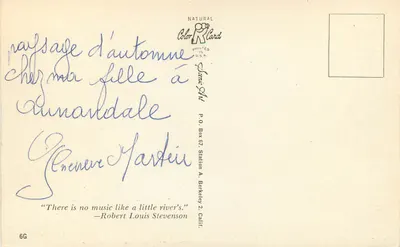 paysage d'automne
chez ma fille à
Annandale
Geneviève Martin
"There is no music like a little river's."
—Robert Louis Stevenson
6G
NATURAL
Color Card
MADE IN
U.S.A.
Scenic Art
P.O. Box 67, Station A, Berkeley 2, Calif.